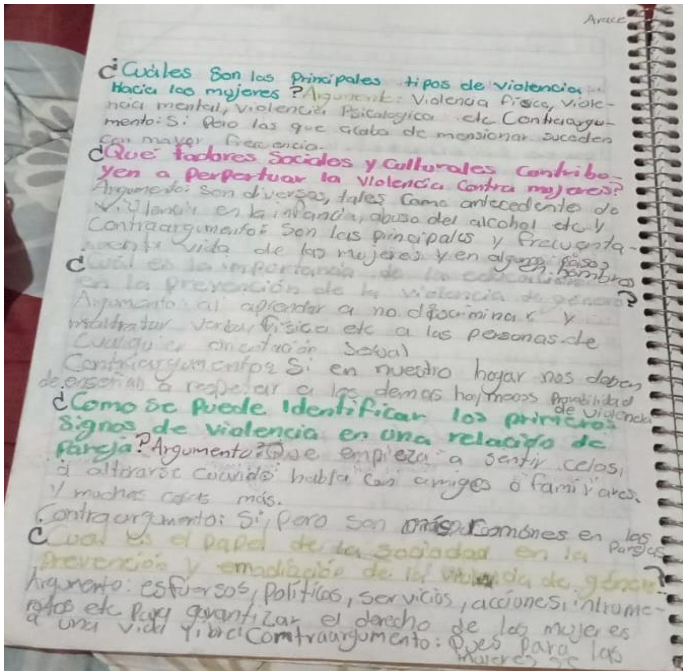 Arace
¿Cuáles son las principales tipos de violencia
Hacia las mujeres? Argumento: Violencia física, viole-
ncia mental, violencia Psicologica etc Contraargu-
mento: Si pero las que acaba de mensionar suceden
con mayor frecuencia.
¿Qué factores Sociales y culturales contribo-
yen a perpertuar la violencia contra mujeres?
Argumento: son diversos, tales como antecedente de
violencia en la infancia, abuso del alcohol etc y
Contraargumento: son las principales y frecuenta-
vida de las mujeres y en algunos casos
en hombres
¿Cuál es la importancia de la educación
en la prevención de la violencia de género?
Argumento: al aprender a no discriminar y
maltratar verbal, física etc a las personas de
cualquier orientación sexual
Contraargumento: Si en nuestro hogar nos deben
de enseñar a respetar a los demas hay menos probabilidad
de violencia
¿Como se puede identificar los primeros
signos de violencia en una relación de
pareja? Argumento: Que empieza a sentir celos,
a alterarse cuando habla con amigos o familiares.
y muchas cosas más.
Contraargumento: Si, pero son más comónes en las
parejas
¿Cual es el papel de la sociedad en la
prevención y de la violencia de género?
Argumento: esfuersos, políticas, servicios, acciones, intrume-
ntos etc para garantizar el derecho de las mujeres
a una vida libre Contraargumento: Pues para las
mujeres